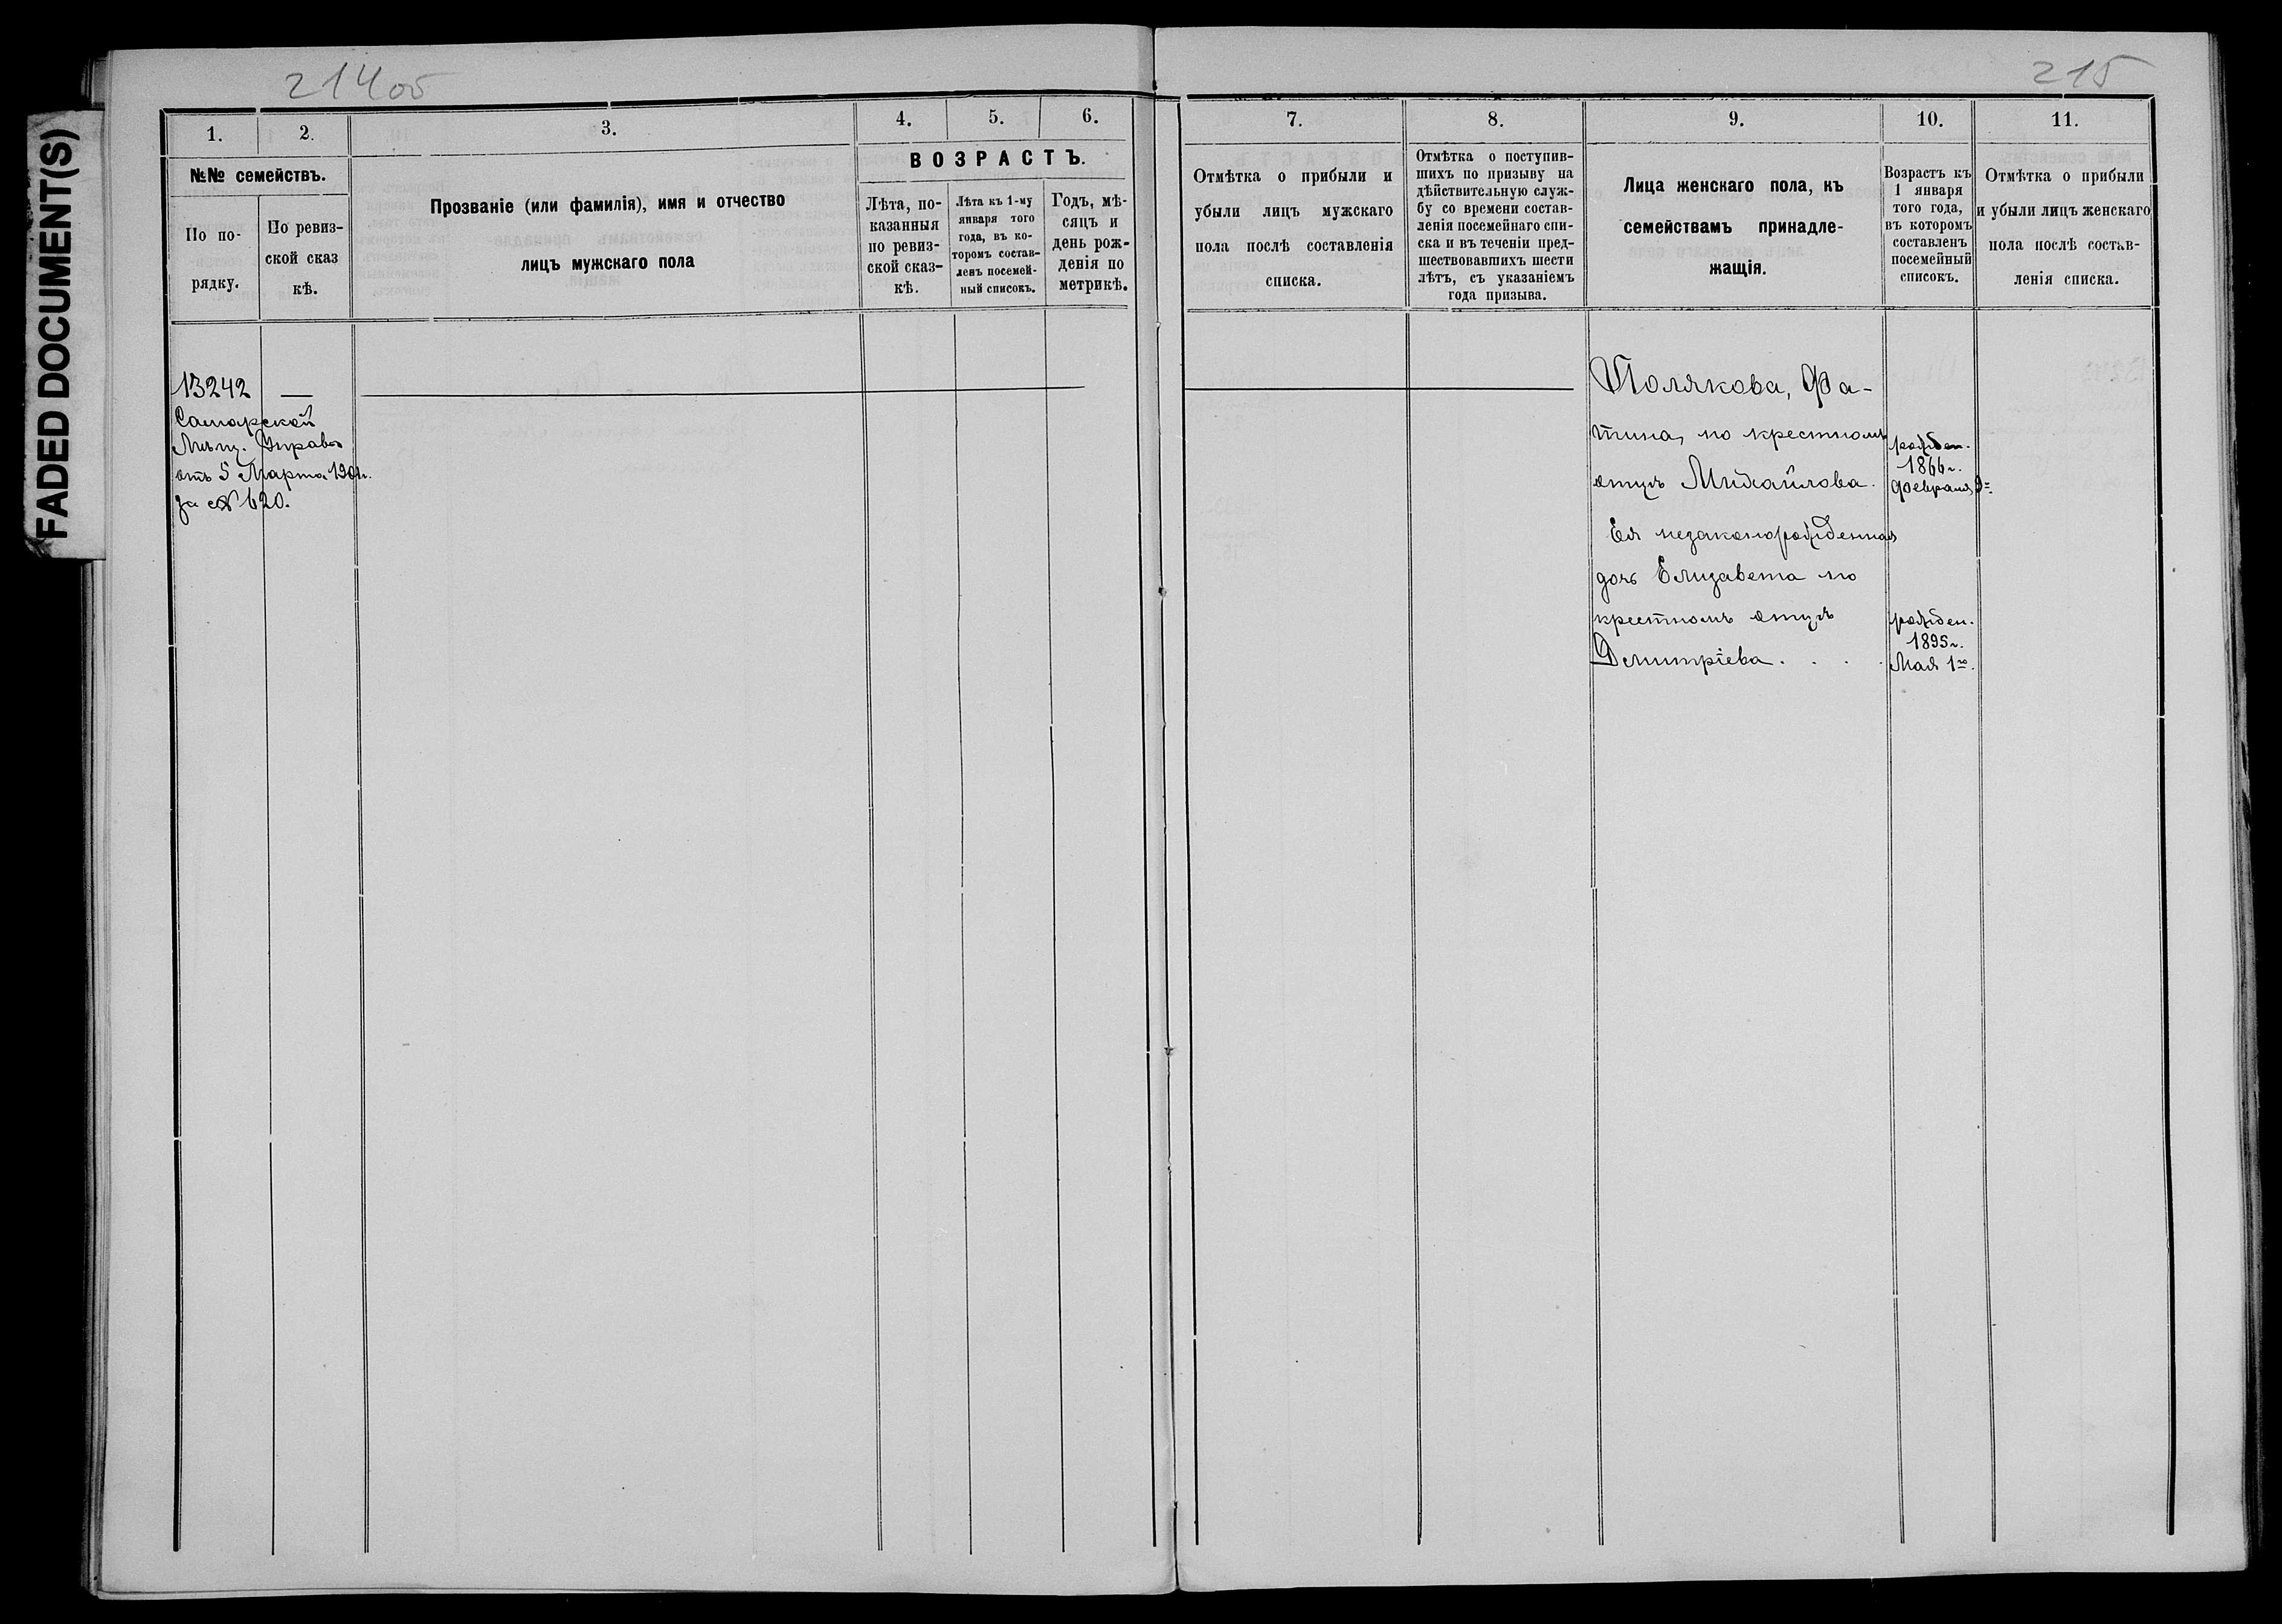 FADED DOCUMENT(S)
214об
215
1.
2.
3.
4.
5.
6.
№№ семействъ.
По по-
рядку.
По ревиз-
ской сказ
кѣ.
Прозваніе (или фамилія), имя и отчество
лицъ мужскаго пола
ВОЗРАСТЪ.
Лѣта, по-
казанныя
по ревиз-
ской сказ-
кѣ.
Лѣта къ 1-му
января того
года, въ ко-
торомъ состав-
ленъ посемей-
ный списокъ.
Годъ, мѣ-
сяцъ и
день рож-
денія по
метрикѣ.
7.
8.
9.
10.
11.
Отмѣтка о прибыли и
убыли лицъ мужскаго
пола послѣ составленія
списка.
Отмѣтка о поступив-
шихъ по призыву на
дѣйствительную служ-
бу со времени состав-
ленія посемейнаго спи-
ска и въ теченіи пред-
шествовавшихъ шести
лѣтъ, съ указаніемъ
года призыва.
Лица женскаго пола, къ
семействамъ принадле-
жащія.
Возрастъ къ
1 января
того года,
въ которомъ
составленъ
посемейный
списокъ.
Отмѣтка о прибыли
и убыли лицъ женскаго
пола послѣ состав-
ленія списка.
13242 —
Самарской
Мѣщ. Управы
отъ 5 Марта 1901г.
за № 620.
Полякова, Фа-
тина, по крестномъ
отцѣ Михайлова.
рожден.
1866г.
Февраля
Ея незаконорожденная
дочь Елизавета по
крестномъ отцѣ
Димитріева . . . .
рожден.
1895г.
Мая 1го.